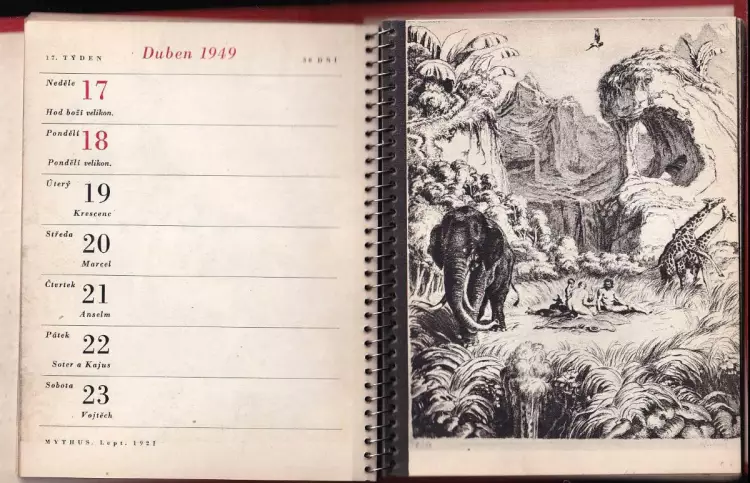 17. TÝDEN
Duben 1949
30 DNÍ
Neděle 17
Hod boží velikon.
Pondělí 18
Pondělí velikon.
Úterý 19
Krescenc
Středa 20
Marcel
Čtvrtek 21
Anselm
Pátek 22
Soter a Kajus
Sobota 23
Vojtěch
MYTHUS. Lept. 1921